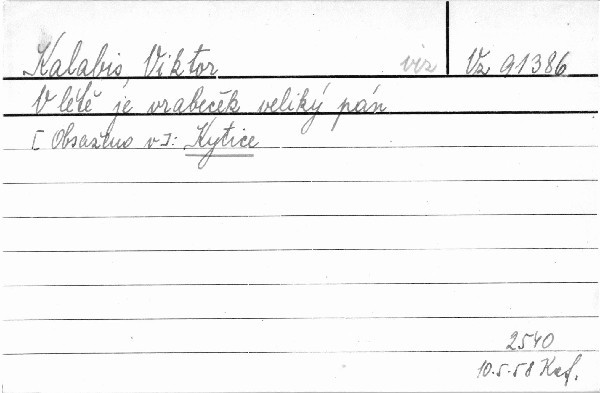 Kalabis, Viktor viz Vz 91386
V létě je vrabeček veliký pán
[Obsaženo v]: Kytice
2540
10.5.58 Kaf.